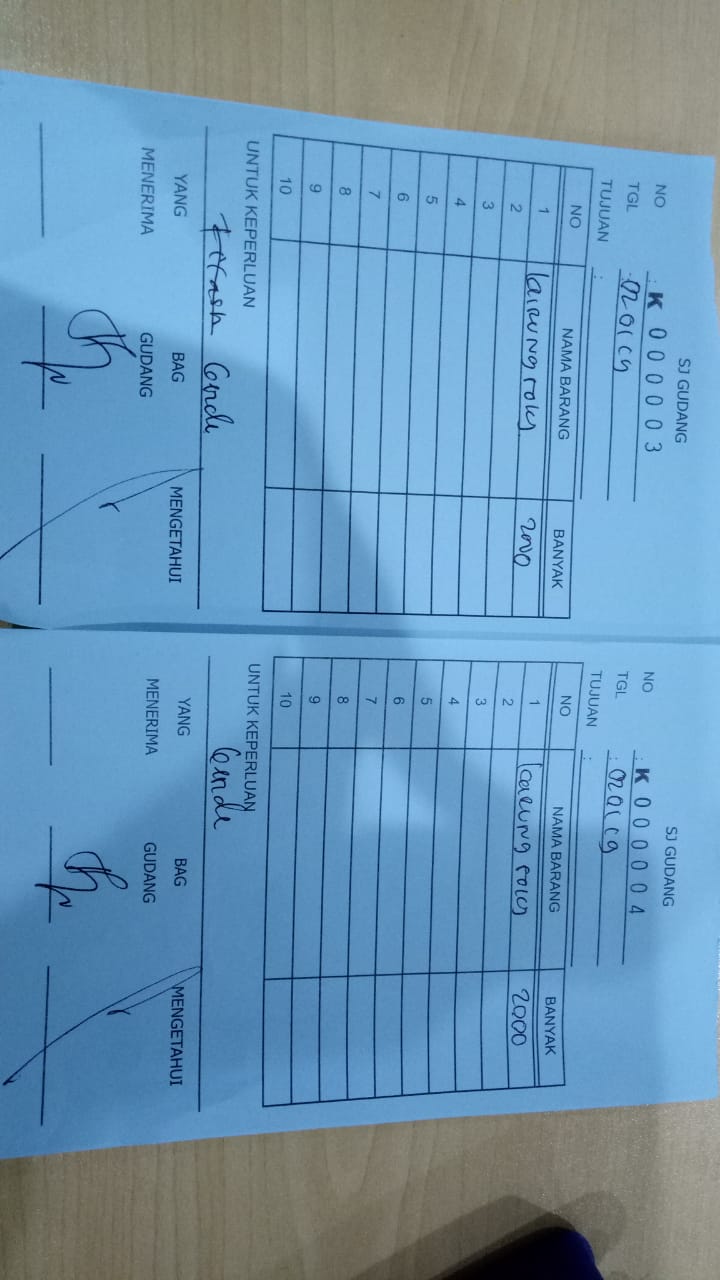 SJ GUDANG
NO : K 0000003
TGL :
TUJUAN :
NO NAMA BARANG BANYAK
1 karung roly 2000
2
3
4
5
6
7
8
9
10
UNTUK KEPERLUAN
YANG MENERIMA BAG GUDANG MENGETAHUI
SJ GUDANG
NO : K 0000004
TGL :
TUJUAN :
NO NAMA BARANG BANYAK
1 karung roly 2000
2
3
4
5
6
7
8
9
10
UNTUK KEPERLUAN
YANG MENERIMA BAG GUDANG MENGETAHUI